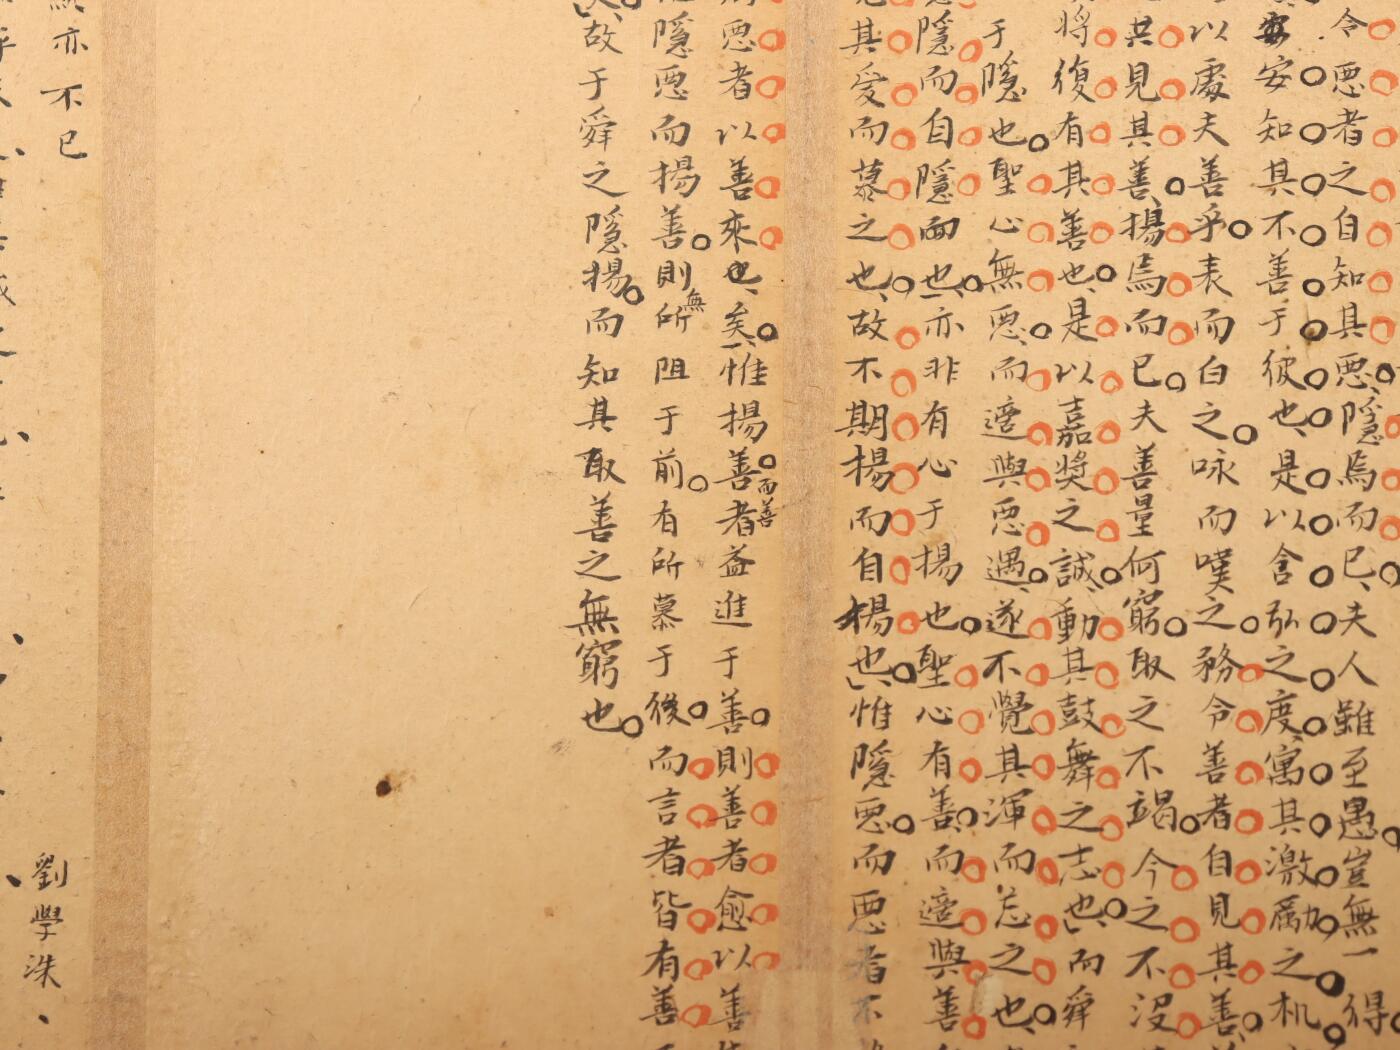 令惡者之自知其惡隱焉而已夫人雖至愚豈無一得
安安知其不善于彼也是以含弘之度寓其激勵之机
以處夫善乎表而白之咏而嘆之務令善者自見其善
其見其善揚焉而已夫善量何窮取之不竭今之不没
將復有其善也是以嘉獎之誠動其鼓舞之志也而舜
于隱也聖心無惡而適與惡遇遂不覺其渾而忘之也
隱而自隱而也亦非有心于揚也聖心有善而適與善
其愛而慕之也故不期揚而自揚也惟隱惡而惡者不
惡者以善來也矣惟揚善而善者益進于善則善者愈以善
隱惡而揚善則無所阻于前有所慕于後而言者皆有善
故于舜之隱揚而知其取善之無窮也
亦不已
劉學洙